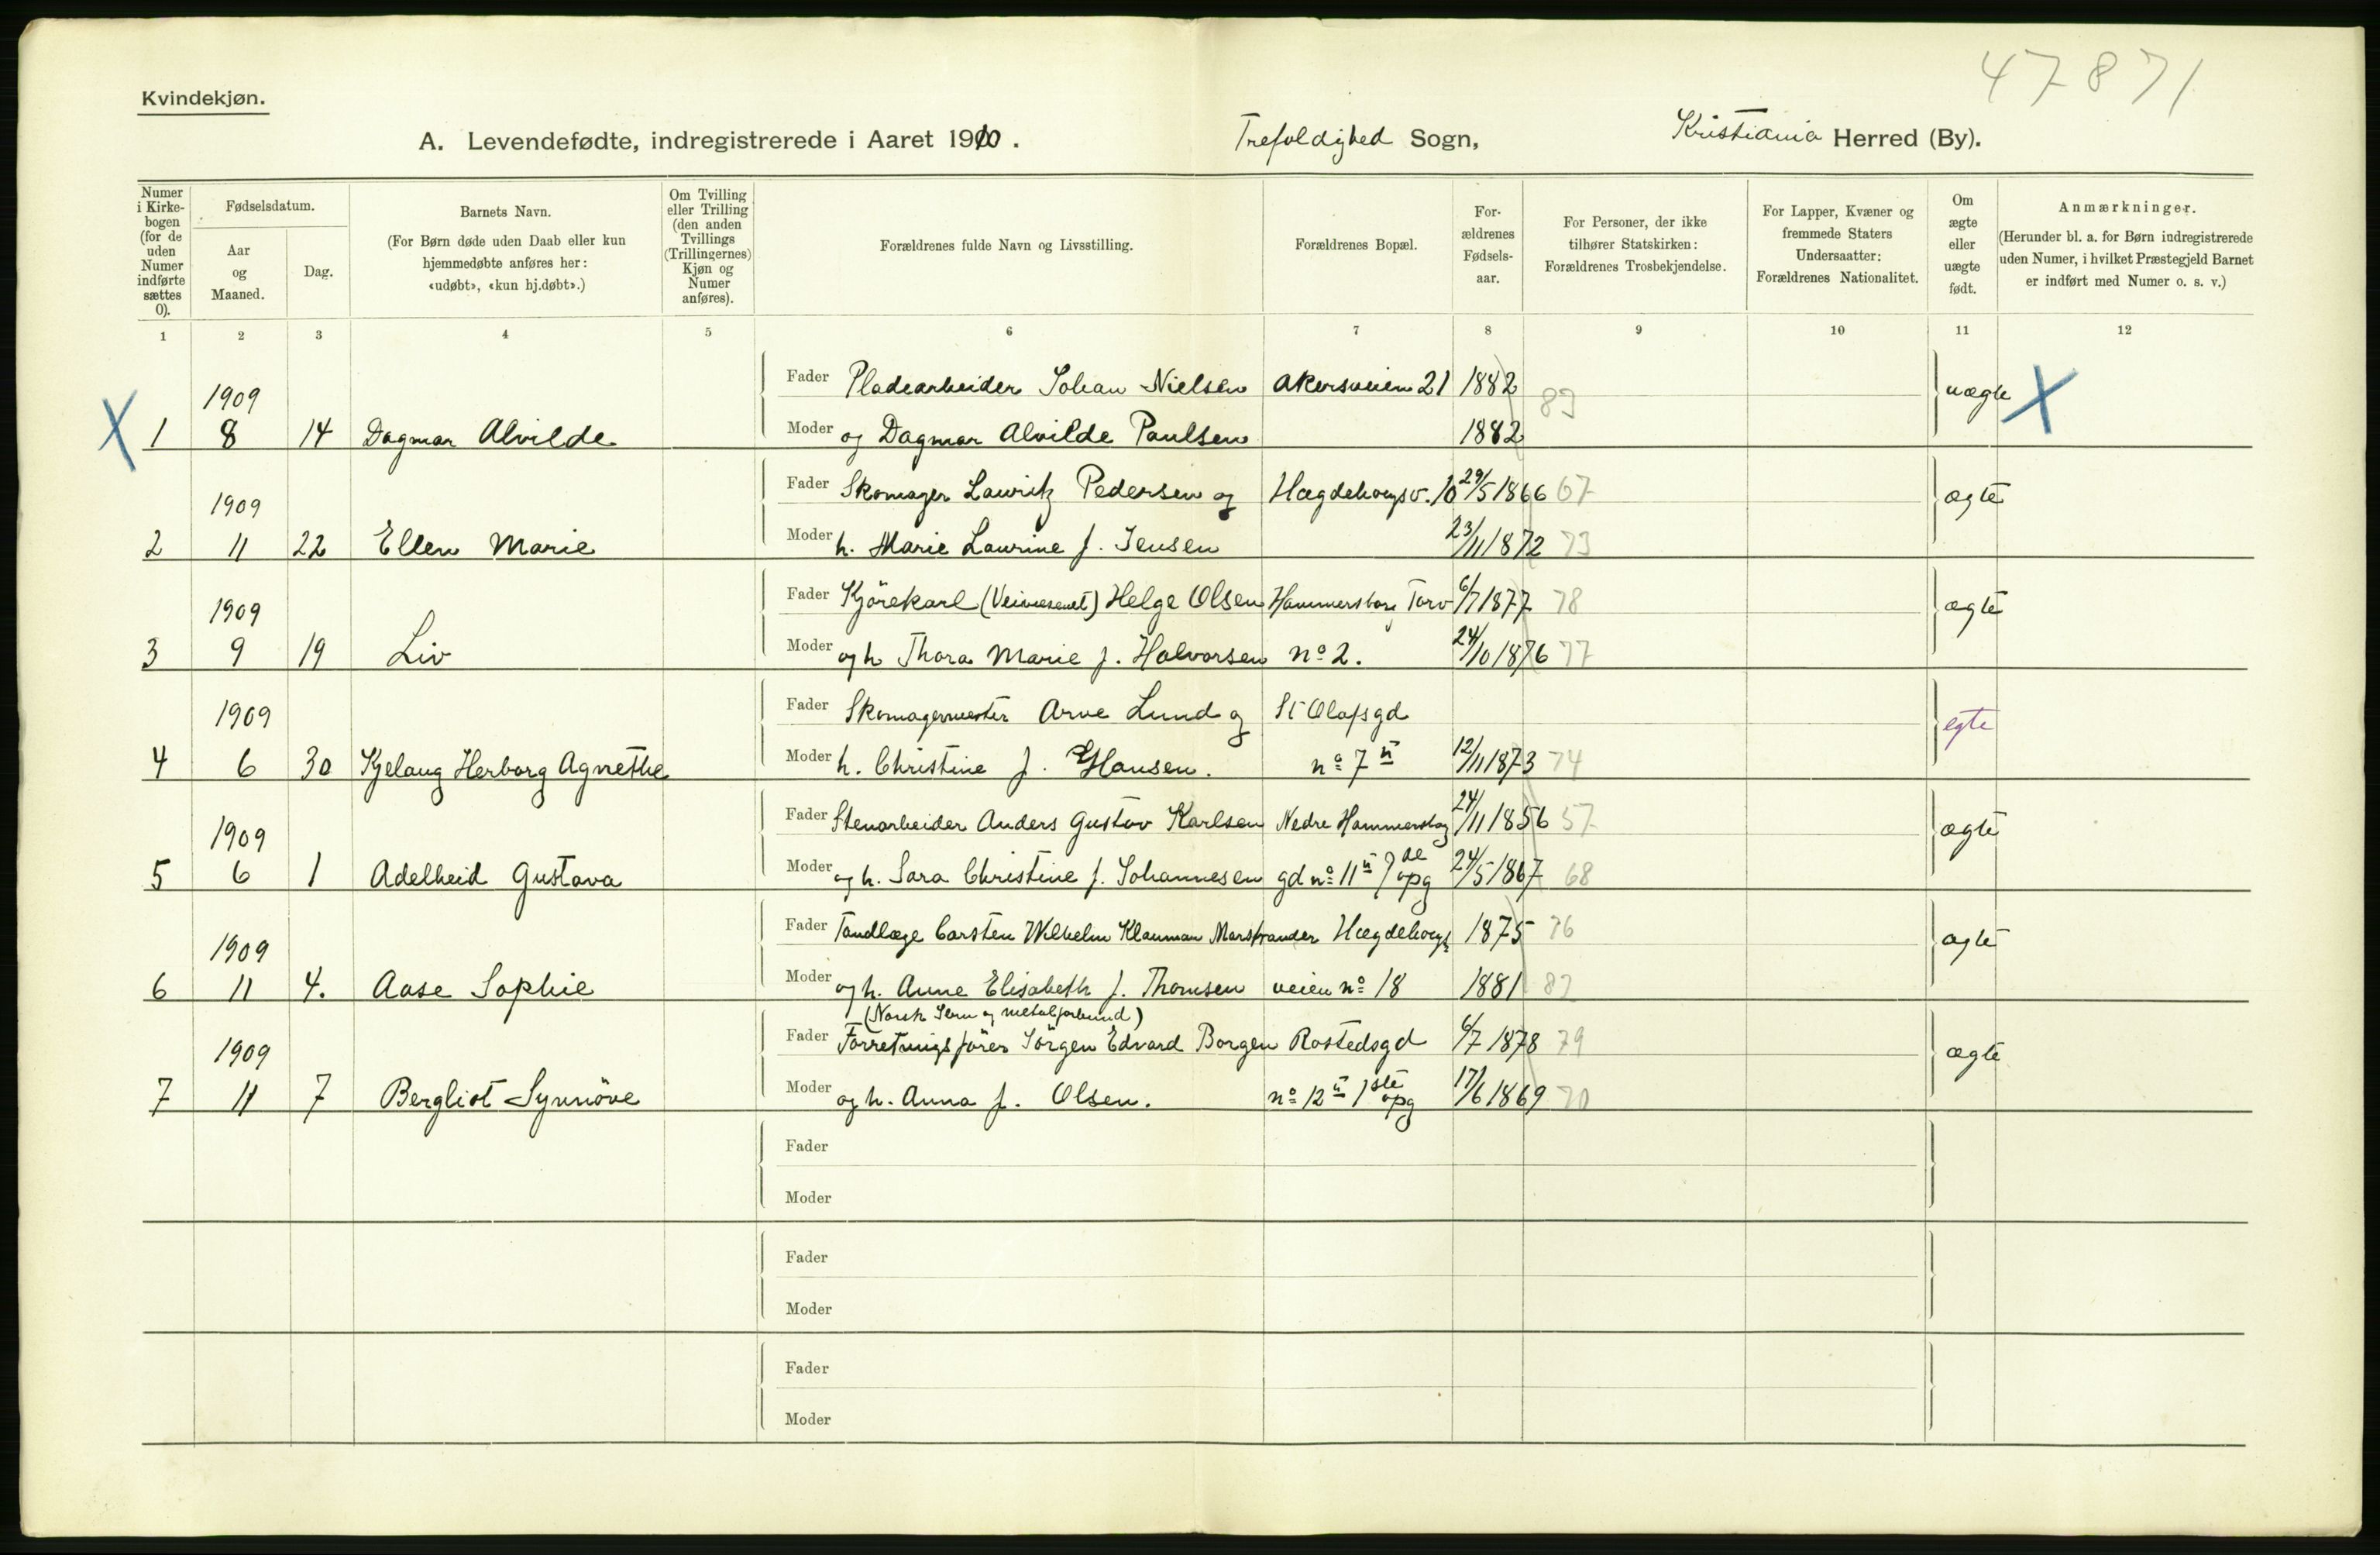 47871
Kvindekjøn.
A. Levendefødte, indregistrerede i Aaret 1910.
Trefoldighed Sogn,
Kristiania Herred (By).
Numer i Kirkebogen (for de uden Numer indførte sættes 0).
Fødselsdatum.
Aar og Maaned.
Dag.
Barnets Navn.
(For Børn døde uden Daab eller kun hjemmedøbte anføres her: «udøbt», «kun hj.døbt».)
Om Tvilling eller Trilling (den anden Tvillings (Trillingernes) Kjøn og Numer anføres).
Forældrenes fulde Navn og Livsstilling.
Forældrenes Bopæl.
For-ældrenes Fødsels-aar.
For Personer, der ikke tilhører Statskirken: Forældrenes Trosbekjendelse.
For Lapper, Kvæner og fremmede Staters Undersaatter: Forældrenes Nationalitet.
Om ægte eller uægte født.
Anmærkninger.
(Herunder bl. a. for Børn indregistrerede uden Numer, i hvilket Præstegjeld Barnet er indført med Numer o. s. v.)
1 2 3 4 5 6 7 8 9 10 11 12
1909 Fader Pladearbeider Johan Nielsen Akersveien 21 1882 83 uægte X
X 1 8 14 Dagmar Alvilde Moder og Dagmar Alvilde Paulsen 1882
1909 Fader Skomager Lauritz Pedersen og Hægdehaugsv. 10 29/5 1866 67 ægte
2 11 22 Ellen Marie Moder h. Marie Laurine f. Jensen 23/11 1872 73
1909 Fader Kjörekarl (Veivæsenet) Helge Olsen Hammersborg Torv 6/7 1877 78 ægte
3 9 19 Liv Moder og h Thora Marie f. Halvorsen nº 2. 24/10 1876 77
1909 Fader Skomagermester Arve Lund og St Olafsgd egte
4 6 30 Kjelaug Herborg Agnethe Moder h. Christine f. Hansen. nº 7 II 12/11 1873 74
1909 Fader Stenarbeider Anders Gustav Karlsen Nedre Hammersborg 24/11 1856 57 ægte
5 6 1 Adelheid Gustava Moder og h. Sara Christine f. Johannesen gd nº 11 II opg 24/5 1867 68
1909 Fader Tandlæge Carsten Wilhelm Klauman Marstrander Hægdehaugs 1875 76 ægte
6 11 4. Aase Sophie Moder og h. Anne Elisabeth f. Thomsen veien nº 18 1881 82
(Norsk Jern og metalforbund)
1909 Fader Forretningsfører Jörgen Edvard Borgen Rostedsgd 6/7 1878 79 ægte
7 11 7 Bergliot Synnöve Moder og h. Anna f. Olsen. nº 12 II 1ste opg 17/6 1869 70
Fader
Moder
Fader
Moder
Fader
Moder